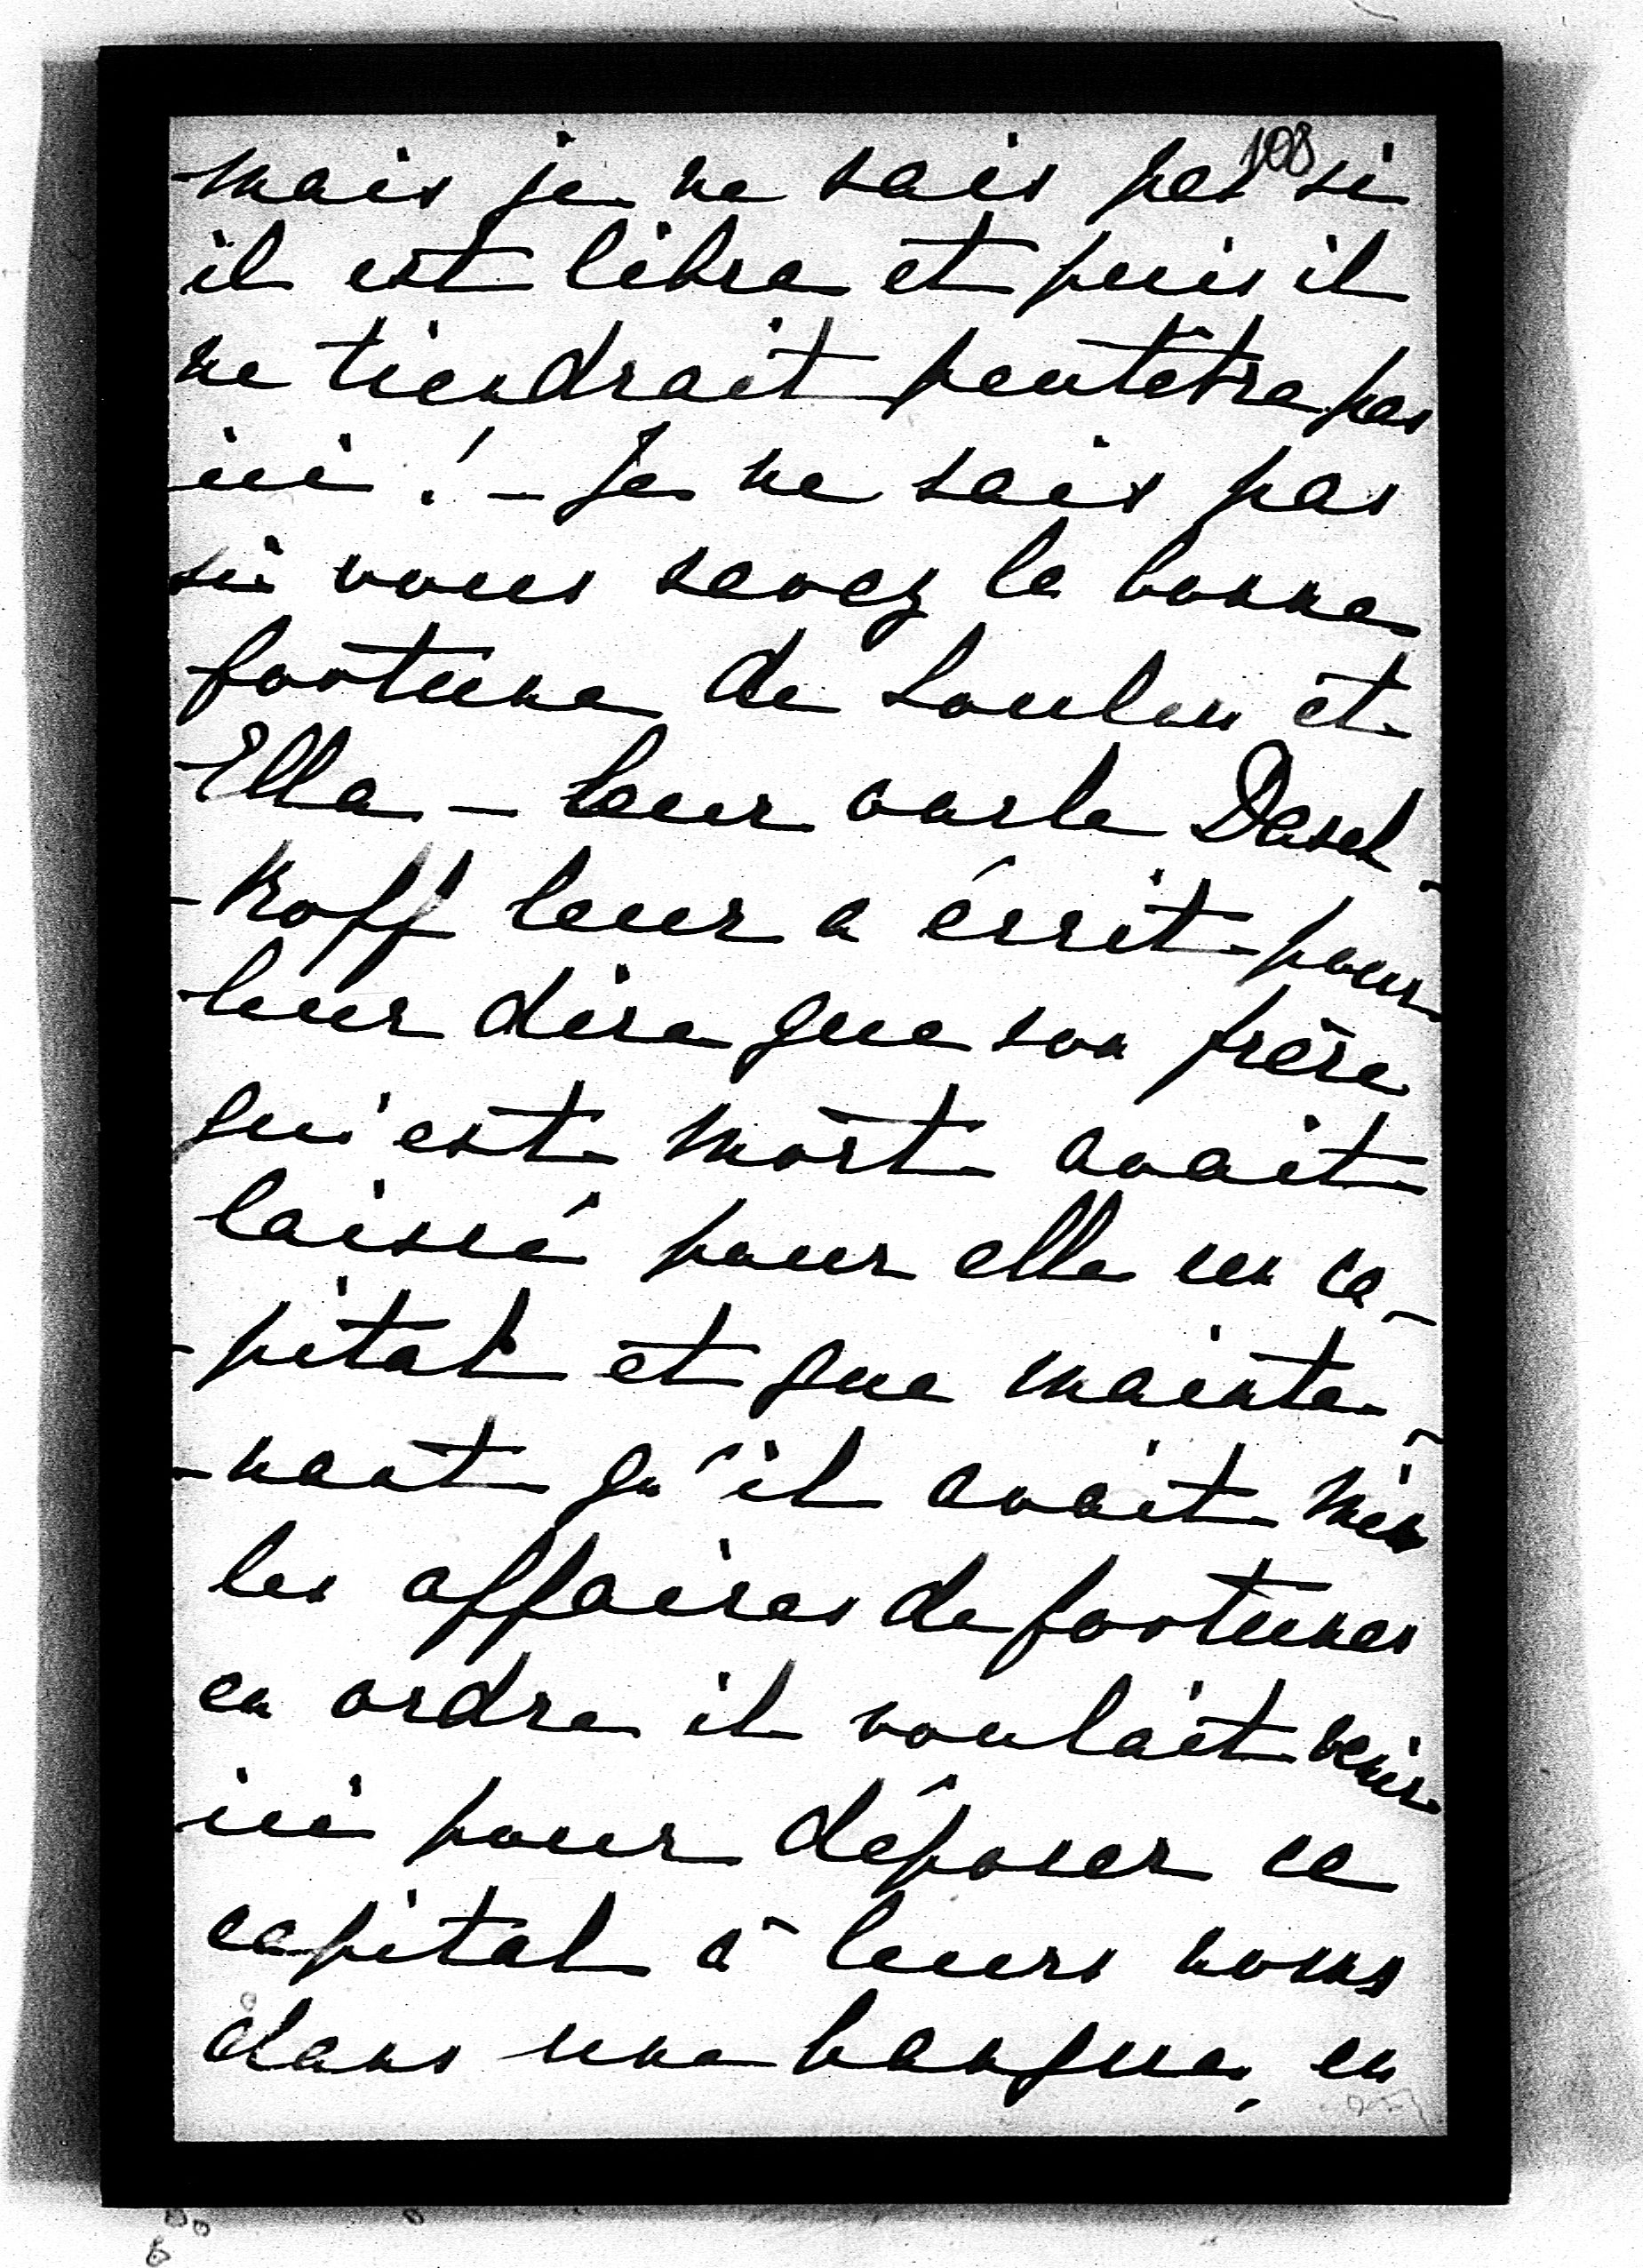 108
mais je ne sais pas si
il est libre et puis il
ne tiendrait peutêtre pas
ici ! – Je ne sais pas
si vous savez la bonne
fortune de Loulou et
Ella – leur oncle Dasch-
-koff leur a écrit pour
leur dire que son frère
qui est mort avait
laissé pour elle un ca-
-pital et que mainte-
-nant qu'il avait mis
les affaires de fortunes
en ordre il voulait venir
ici pour déposer ce
capital à leurs noms
dans une banque, en